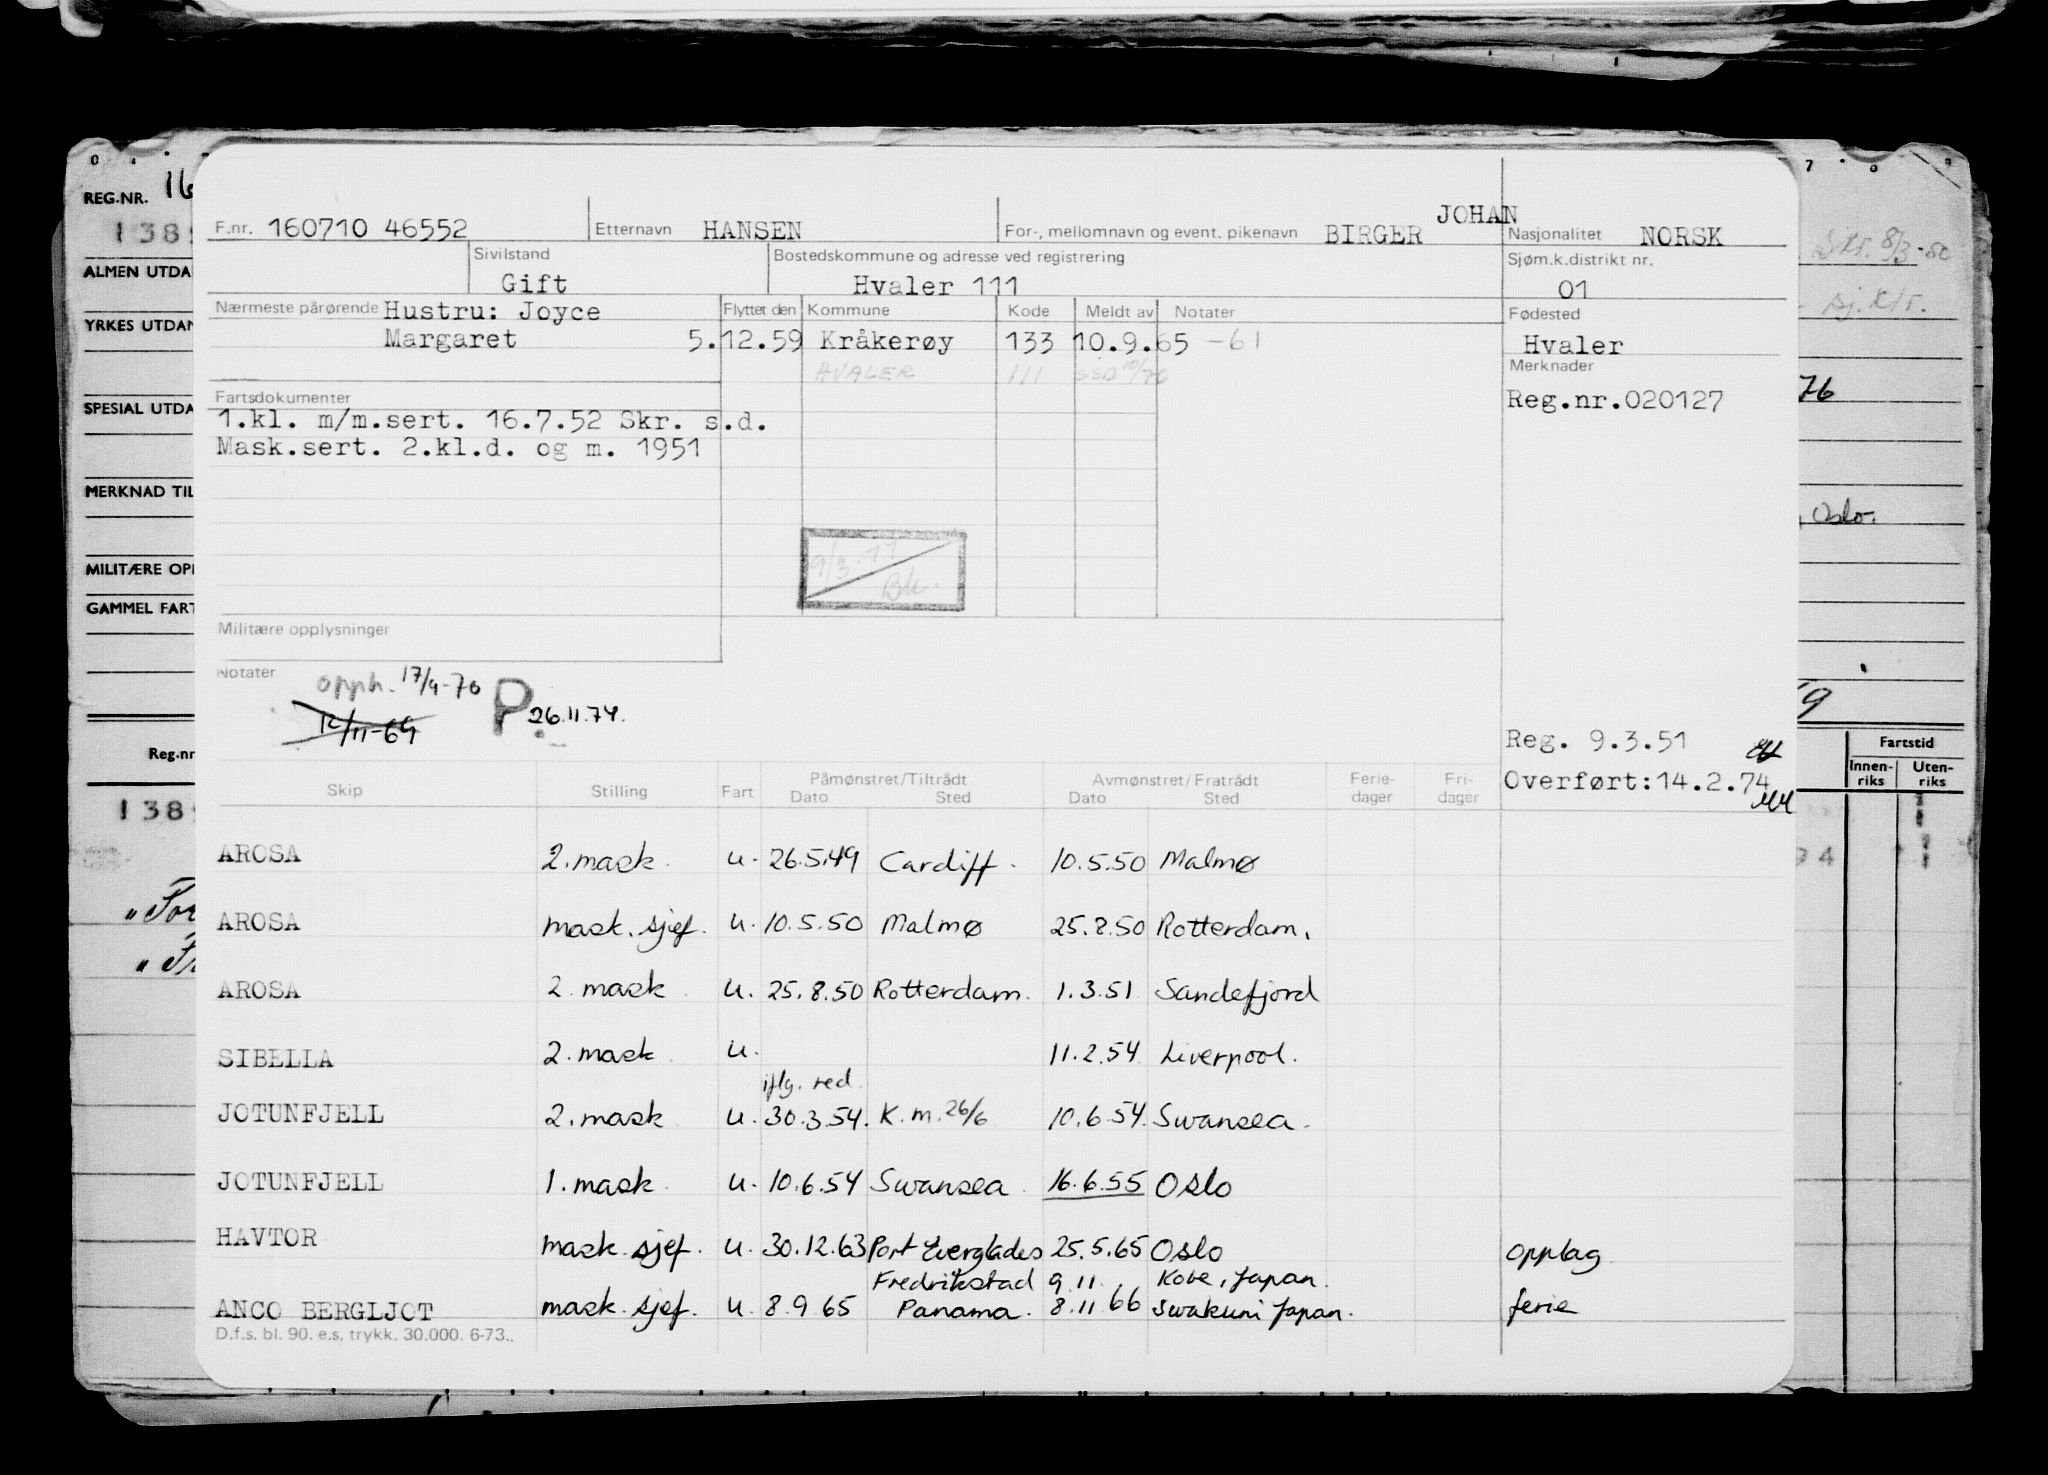 REG.NR. 16
F.nr. 160710 46552 Etternavn HANSEN For-, mellomnavn og event. pikenavn BIRGER JOHAN Nasjonalitet NORSK
Sivilstand Gift Bostedskommune og adresse ved registrering Hvaler 111 Sjøm.k.distrikt nr. 01
Nærmeste pårørende Hustru: Joyce Flyttet den Kommune Kode Meldt av Notater Fødested
Margaret 5.12.59 Kråkerøy 133 10.9.65 -61 Hvaler
HVALER 111 SSB 10/76 Merknader
Fartsdokumenter Reg.nr.020127
1.kl. m/m.sert. 16.7.52 Skr. s.d.
Mask.sert. 2.kl.d. og m. 1951
9/3.77
Bk.
Militære opplysninger
Notater opph. 17/9-70
12/11-69 P 26.11.74.
Reg. 9.3.51
Overført:14.2.74
Skip Stilling Fart Påmønstret/Tiltrådt Dato Sted Avmønstret/Fratrådt Dato Sted Ferie-dager Fri-dager
AROSA 2. mask. u. 26.5.49 Cardiff. 10.5.50 Malmø
AROSA mask. sjef. u. 10.5.50 Malmø 25.8.50 Rotterdam.
AROSA 2. mask. u. 25.8.50 Rotterdam. 1.3.51 Sandefjord
SIBELLA 2. mask. u. 11.2.54 Liverpool.
iflg. red.
JOTUNFJELL 2. mask. u. 30.3.54. K.m. 26/6 10.6.54. Swansea.
JOTUNFJELL 1. mask. u. 10.6.54 Swansea. 16.6.55 Oslo
HAVTOR mask. sjef. u. 30.12.63 Port Everglades 25.5.65 Oslo opplag
Fredrikstad 9.11. Kobe, Japan.
ANCO BERGLJOT mask. sjef. u. 8.9.65 Panama. 8.11.66 Swakuni Japan. ferie
D.f.s. bl. 90. e.s. trykk. 30.000. 6-73..
ALMEN UTDA
YRKES UTDAN
SPESIAL UTDA
MERKNAD TIL
MILITÆRE OPP
GAMMEL FART
Reg.nr
138
76
Oslo.
Fartstid
Innen-riks Uten-riks